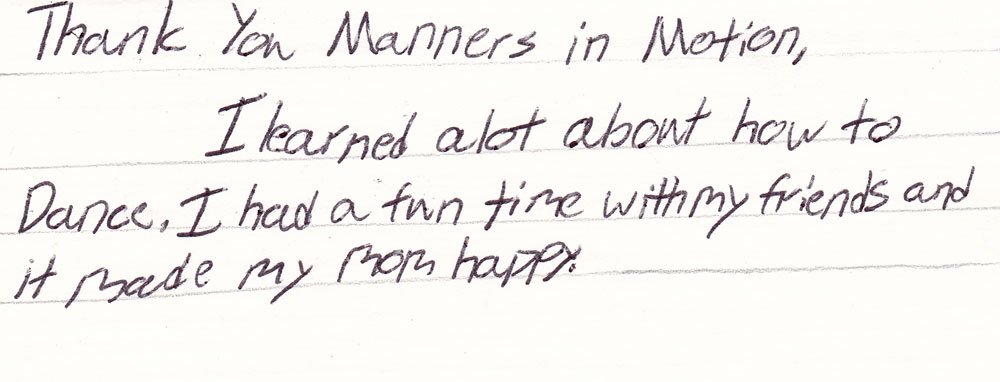 Thank You Manners in Motion,
I learned alot about how to
Dance. I had a fun time with my friends and
it made my mom happy.